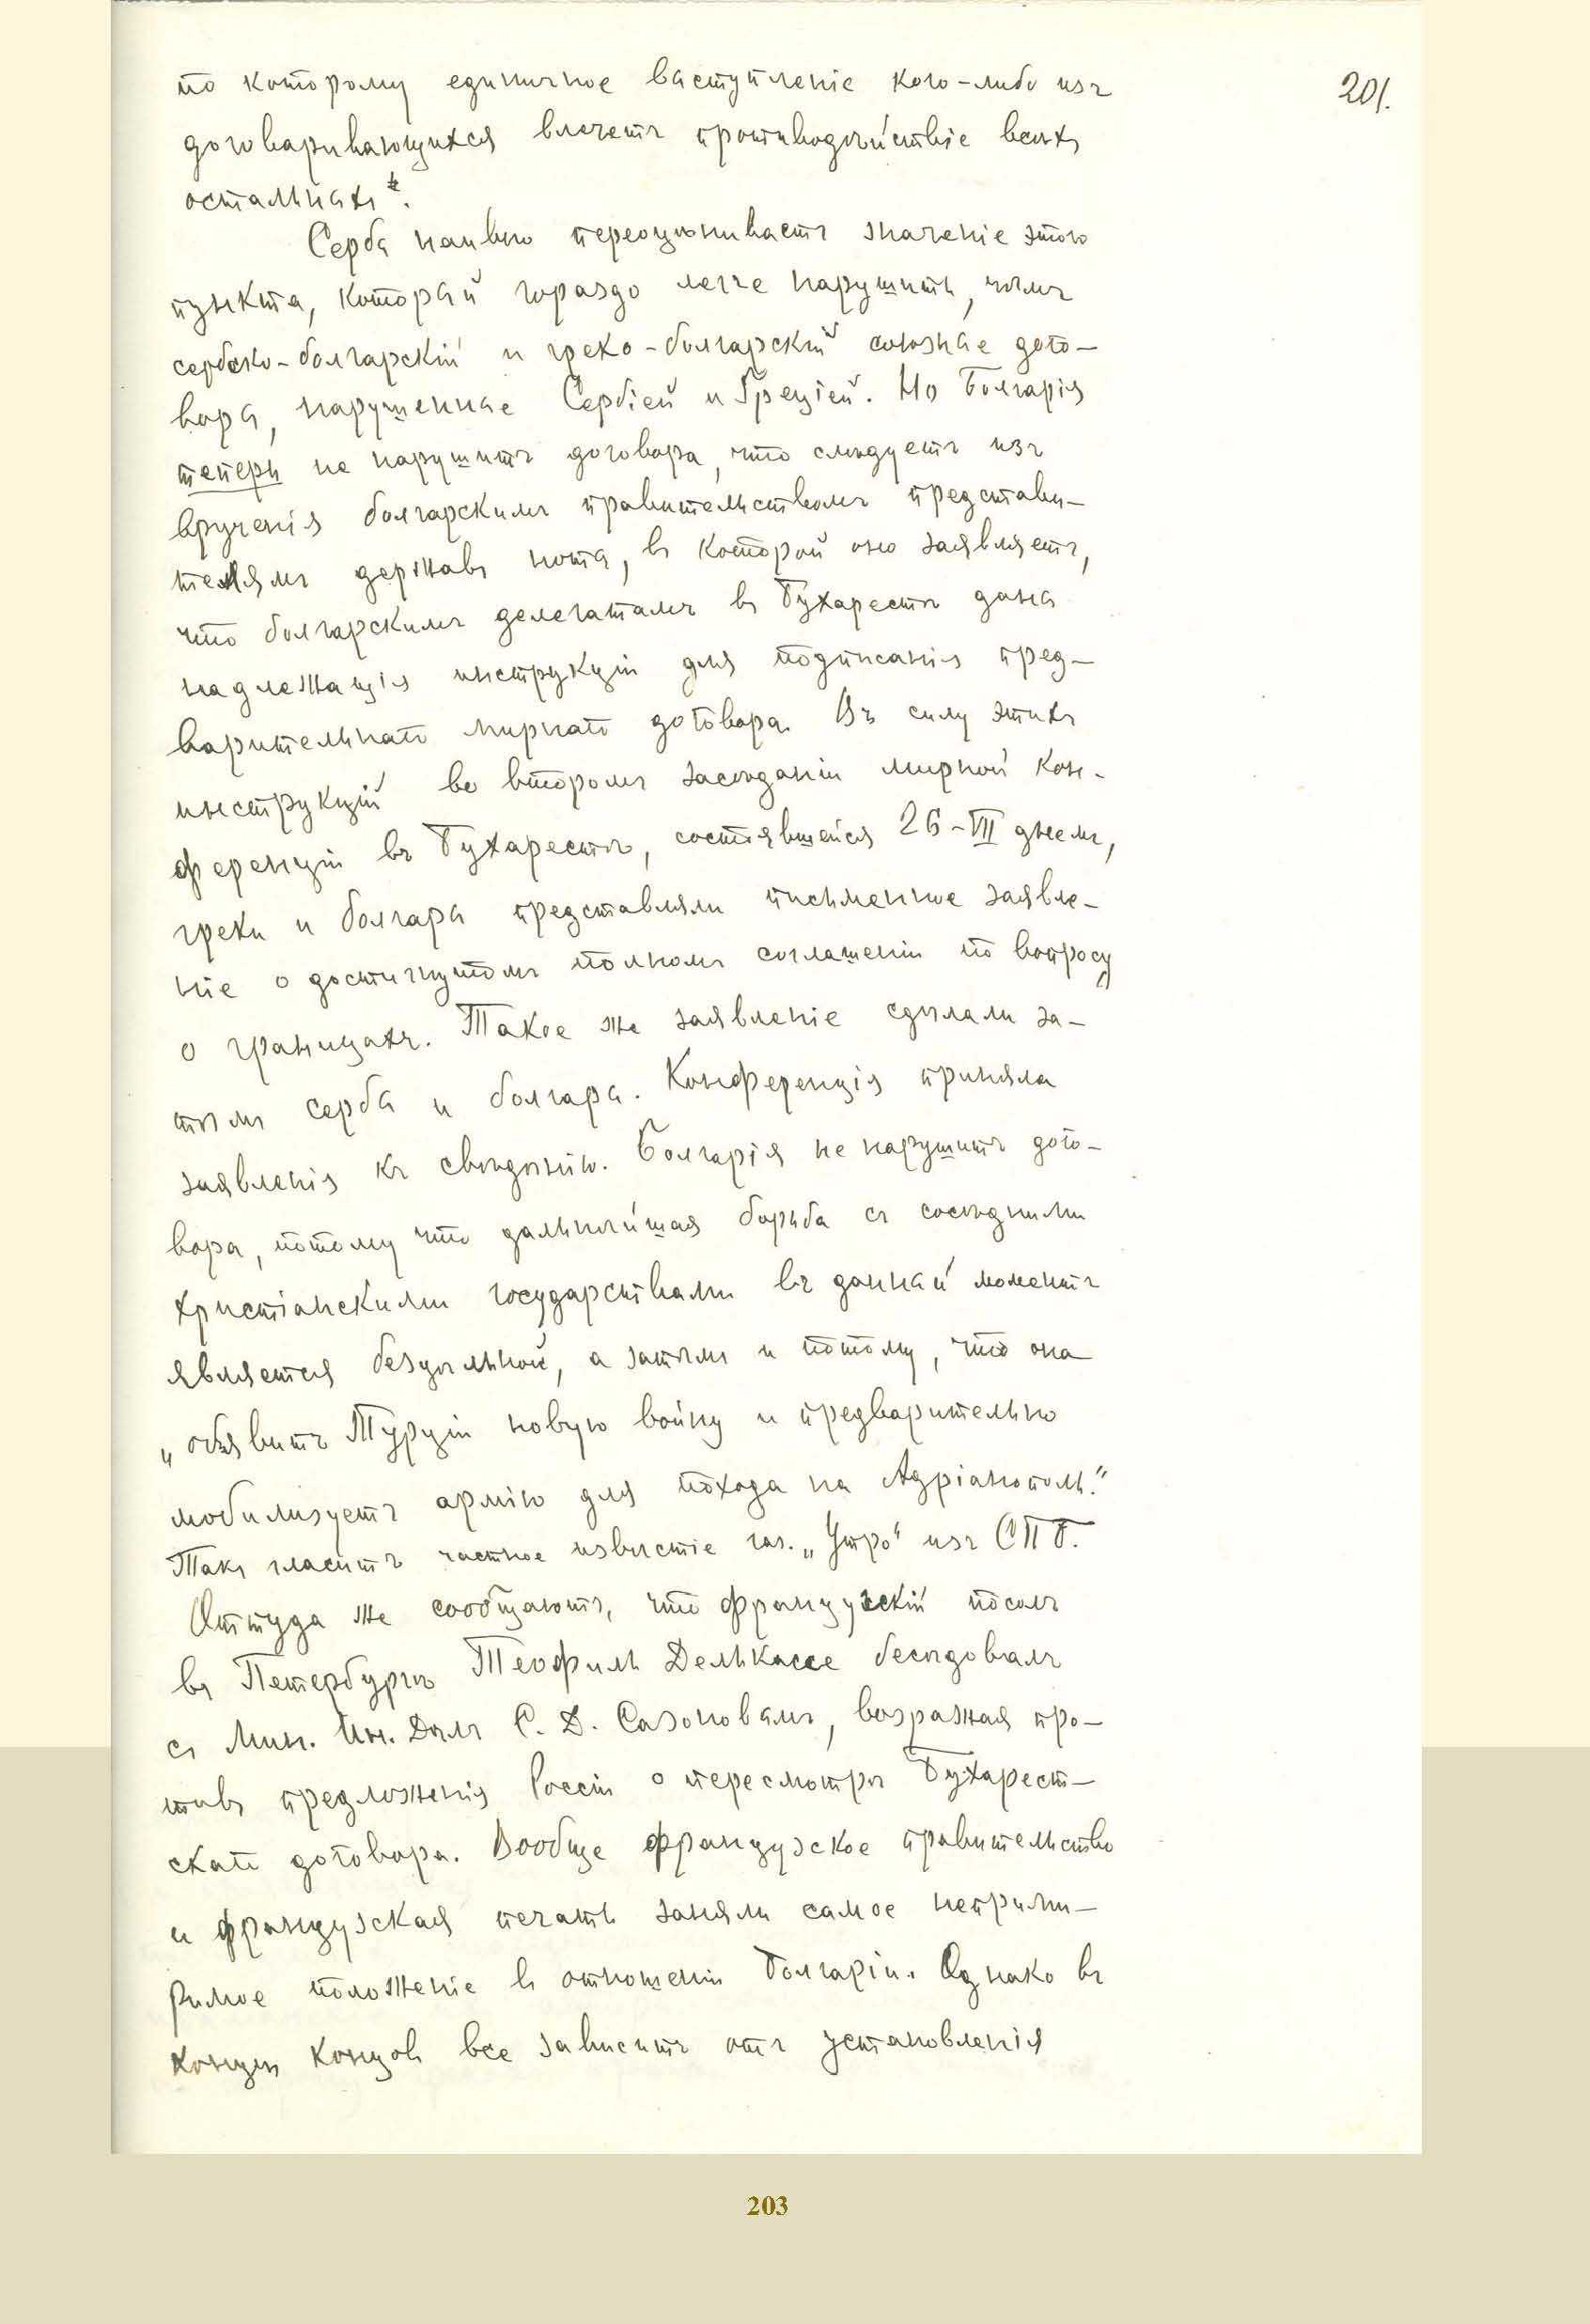 201.
по которому единичное выступленіе кого-либо изъ
договаривающихся влечетъ противодѣйствіе всѣхъ
остальныхъ".
Сербы наивно переоцѣниваютъ значеніе этого
пункта, который гораздо легче нарушить, чѣмъ
сербско-болгарскій и греко-болгарскій союзные дого-
воры, нарушенные Сербіей и Греціей. Но Болгарія
теперь не нарушитъ договора, что слѣдуетъ изъ
врученія болгарскимъ правительствомъ представи-
телямъ державъ ноты, въ которой оно заявляетъ,
что болгарскимъ делегатамъ въ Бухарестѣ даны
надлежащія инструкціи для подписанія пред-
варительнаго мирнаго договора. Въ силу этихъ
инструкцій во второмъ засѣданіи мирной кон-
ференціи въ Бухарестѣ, состоявшейся 26-VII днемъ,
греки и болгары представляли письменное заявле-
ніе о достигнутомъ полномъ соглашеніи по вопросу
о границахъ. Такое же заявленіе сдѣлали за-
тѣмъ сербы и болгары. Конференція приняла
заявленія къ свѣдѣнію. Болгарія не нарушитъ дого-
вора, потому что дальнѣйшая борьба съ сосѣдними
христіанскими государствами въ данный моментъ
является безцѣльной, а затѣмъ и потому, что она
„объявитъ Турціи новую войну и предварительно
мобилизуетъ армію для похода на Адріанополь."
Такъ гласитъ частное извѣстіе газ. „Утро" изъ СПБ.
Оттуда же сообщаютъ, что французскій посолъ
въ Петербургѣ Теофиль Делькассе бесѣдовалъ
съ Мин. Ин. Дѣлъ С. Д. Сазоновымъ, возражая про-
тивъ предложенія Россіи о пересмотрѣ Бухарест-
скаго договора. Вообще французское правительство
и французская печать заняли самое неприми-
римое положеніе въ отношеніи Болгаріи. Однако въ
концѣ концовъ все зависитъ отъ установленія
203